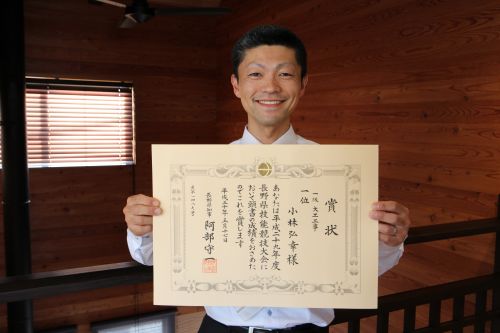 賞状
一般 大工工事
一位
小林弘幸様
あなたは平成二十九年度
長野県技能競技大会に
おいて頭書の成績をおさめた
のでこれを賞します
平成三十年三月十七日
長野県知事 阿部守一